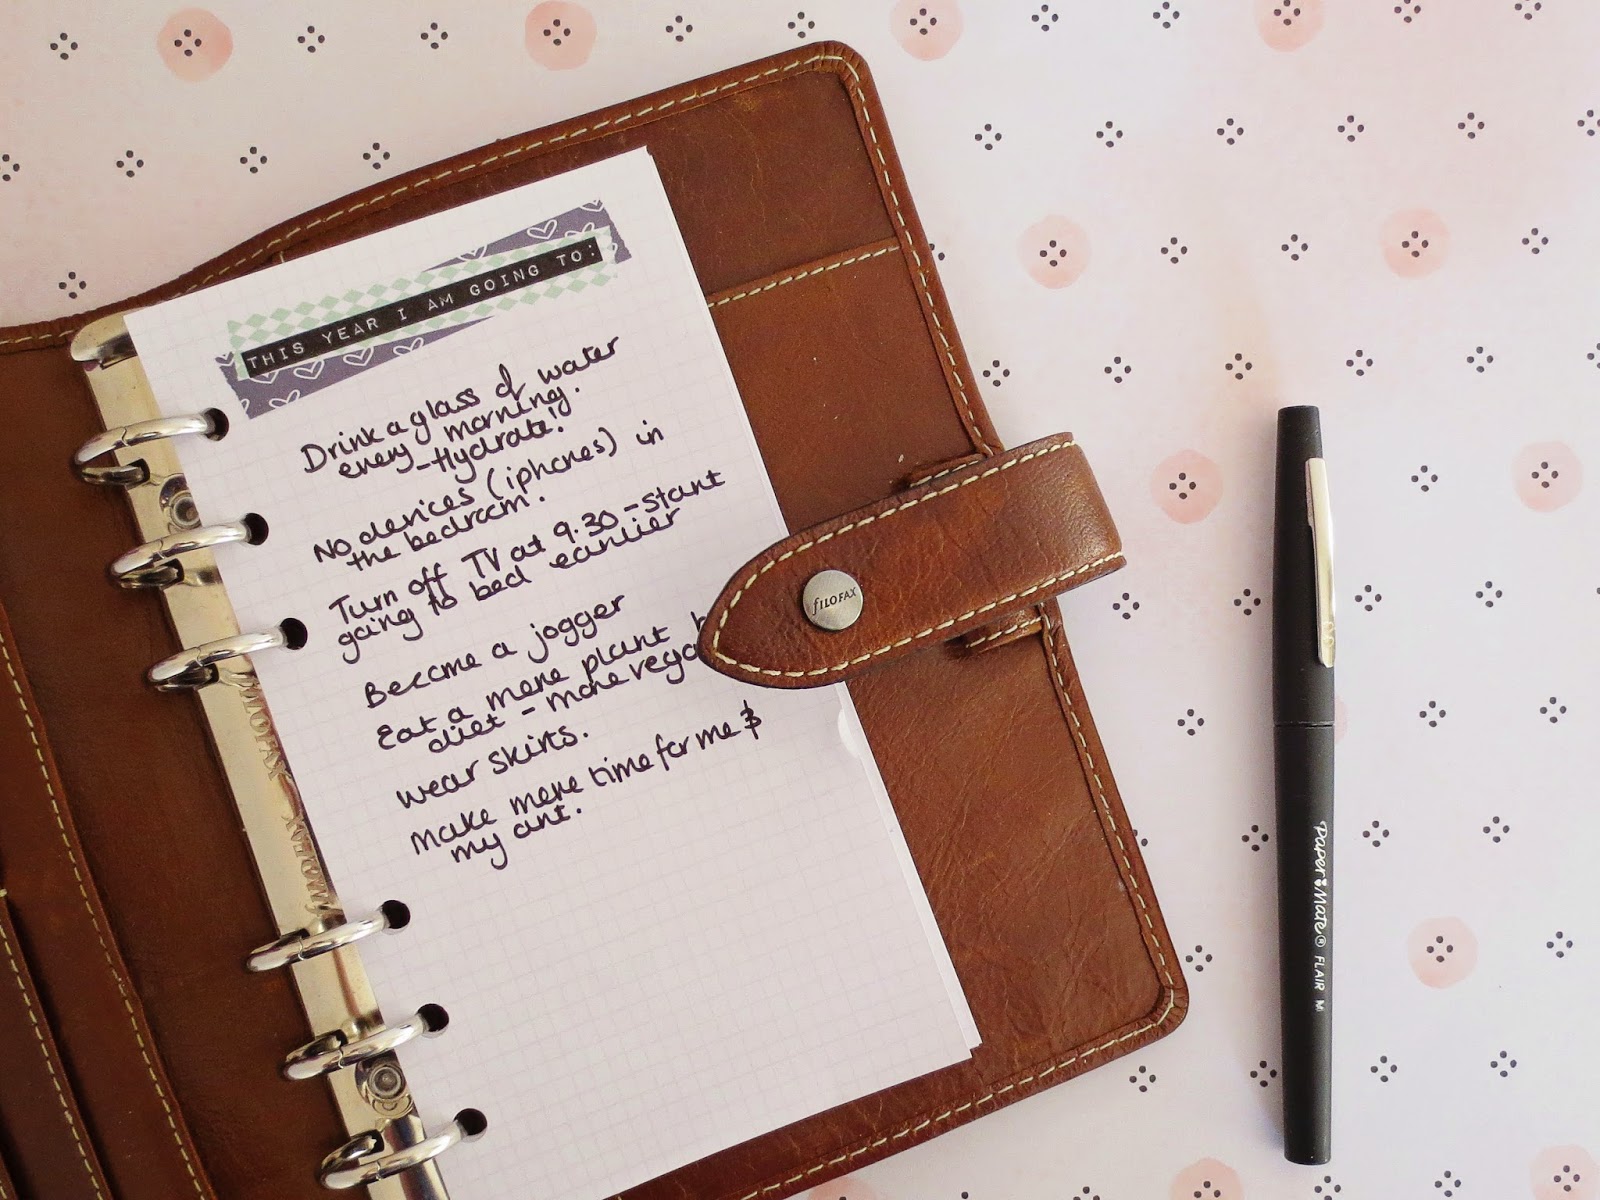 THIS YEAR I AM GOING TO:
Drink a glass of water
every morning.
- Hydrate!
No devices (iphones) in
the bedroom.
Turn off TV at 9.30 - start
going to bed earlier
Become a jogger
Eat a more plant
diet - more
wear skirts.
Make more time for me &
my art.
fILOFAX
FILOFAX
Paper Mate® FLAIR M